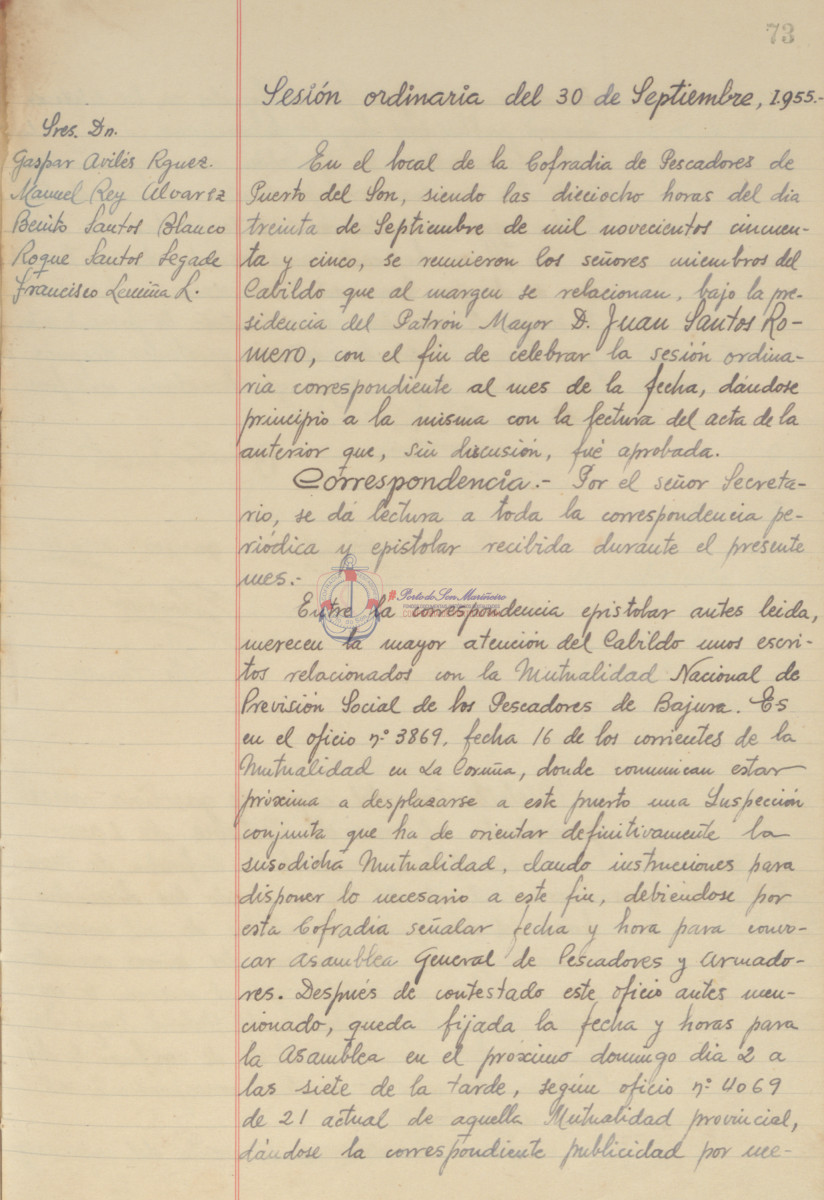 73
Sesión ordinaria del 30 de Septiembre, 1.955.-
Sres. Dn.
Gaspar Avilés Rguez.
Manuel Rey Alvarez
Benito Santos Blanco
Roque Santos Segade
Francisco Lemiña L.
En el local de la Cofradia de Pescadores de
Puerto del Son, siendo las dieciocho horas del dia
treinta de Septiembre de mil novecientos cincuen-
ta y cinco, se reunieron los señores miembros del
Cabildo que al margen se relacionan, bajo la pre-
sidencia del Patrón Mayor D. Juan Santos Ro-
mero, con el fin de celebrar la sesión ordina-
ria correspondiente al mes de la fecha, dándose
principio a la misma con la lectura del acta de la
anterior que, sin discusión, fué aprobada.
Correspondencia.- Por el señor Secreta-
rio, se dá lectura a toda la correspondencia pe-
riódica y epistolar recibida durante el presente
mes.-
#PortodeSonMariñeiro
Entre la correspondencia epistolar antes leida,
merecen la mayor atención del Cabildo unos escri-
tos relacionados con la Mutualidad Nacional de
Previsión Social de los Pescadores de Bajura. Es
en el oficio nº 3869, fecha 16 de los corrientes de la
Mutualidad en La Coruña, donde comunican estar
próxima a desplazarse a este puerto una Inspección
conjunta que ha de orientar definitivamente la
susodicha Mutualidad, dando instrucciones para
disponer lo necesario a este fin, debiéndose por
esta Cofradia señalar fecha y hora para convo-
car Asamblea General de Pescadores y Armado-
res. Después de contestado este oficio antes men-
cionado, queda fijada la fecha y horas para
la Asamblea en el próximo domingo dia 2 a
las siete de la tarde, según oficio nº 4069
de 21 actual de aquella Mutualidad provincial,
dándose la correspondiente publicidad por me-